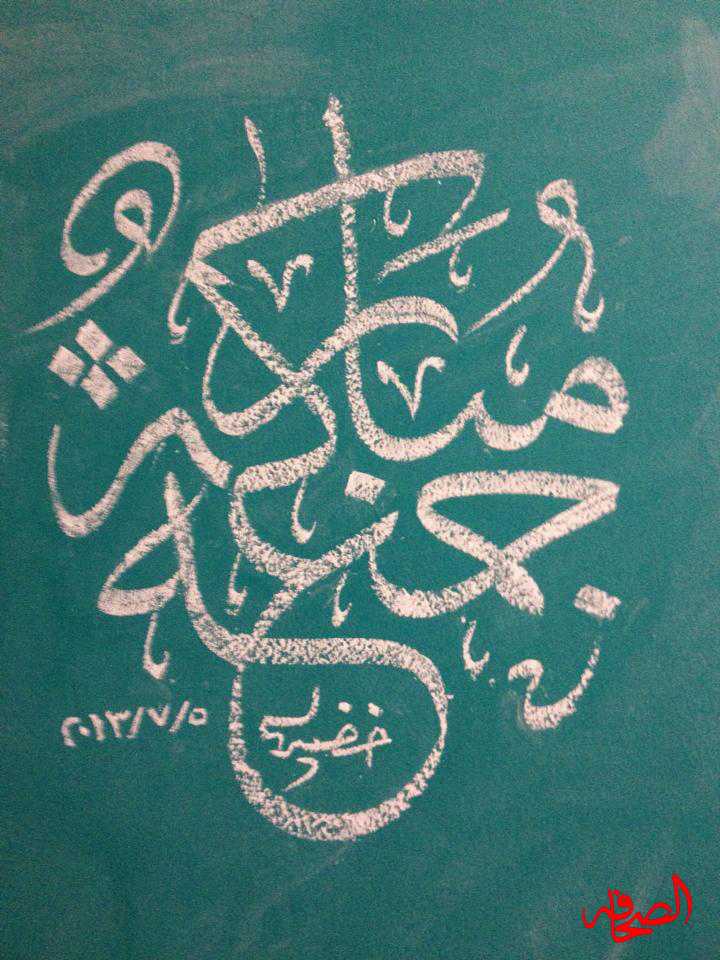 جمعة
مباركة
خضير
٢٠١٣/٧/٥